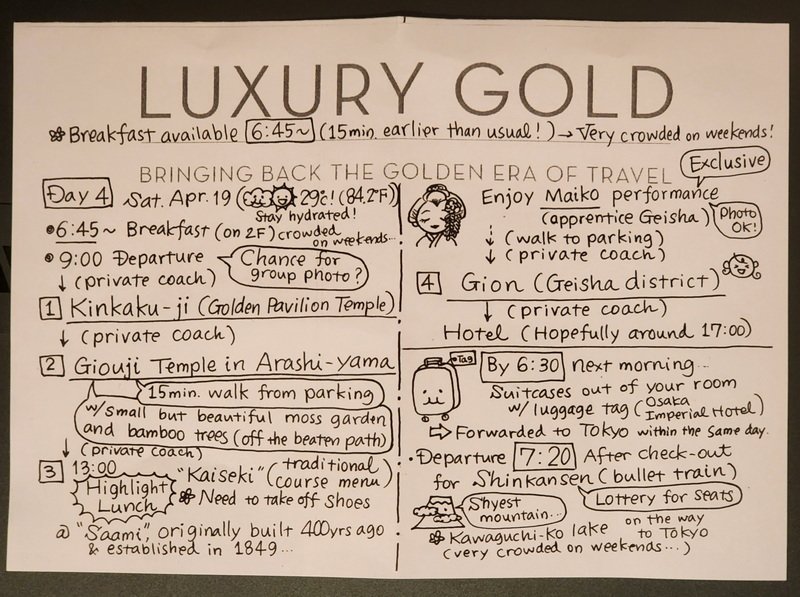 LUXURY GOLD
Breakfast available 6:45~ (15min. earlier than usual!) → Very crowded on weekends!
BRINGING BACK THE GOLDEN ERA OF TRAVEL
Day 4 Sat. Apr. 19 (29°C! (84.2°F))
Stay hydrated!
• 6:45~ Breakfast (on 2F) crowded
on weekends...
• 9:00 Departure
Chance for
group photo?
↓ (private coach)
1 Kinkaku-ji (Golden Pavilion Temple)
↓ (private coach)
2 Giouji Temple in Arashi-yama
15min. walk from parking
w/small but beautiful moss garden
and bamboo trees (off the beaten path)
↓ (private coach)
3 13:00
Highlight
Lunch
"Kaiseki" (traditional
course menu)
Need to take off shoes
@ "Saami", originally built 400yrs ago
& established in 1849...
Exclusive
Enjoy Maiko performance
(apprentice Geisha)
Photo
OK!
↓ (walk to parking)
↓ (private coach)
4 Gion (Geisha district)
↓ (private coach)
Hotel (Hopefully around 17:00)
Tag
By 6:30 next morning...
Suitcases out of your room
w/ luggage tag (Osaka
Imperial Hotel)
⇨ Forwarded to Tokyo within the same day.
• Departure 7:20 After check-out
for Shinkansen (bullet train)
Lottery for seats
Shyest
mountain...
Kawaguchi-ko lake on the way
to Tokyo
(very crowded on weekends...)